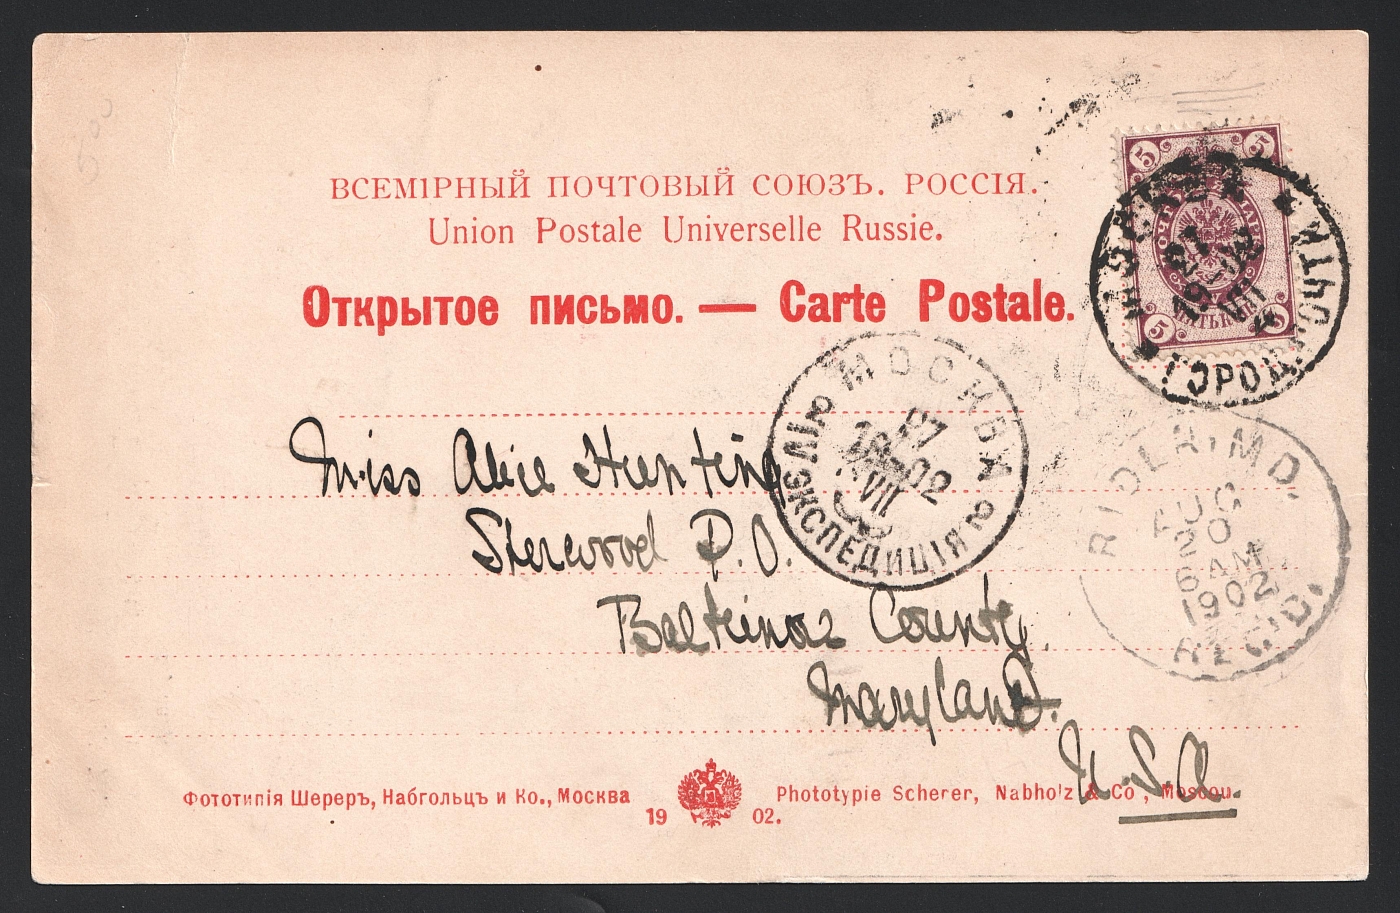 ВСЕМІРНЫЙ ПОЧТОВЫЙ СОЮЗЪ. РОССІЯ.
Union Postale Universelle Russie.
Открытое письмо. — Carte Postale.
5 5
5 5
ГОРОД. ПОЧТА
МОСКВА
27
VII
1902
ЭКСПЕДИЦІЯ
Miss Alice Hunting
Sherwood P.O.
Baltimore County.
Maryland.
U.S.A.
MD.
AUG
20
6 AM
1902
REC'D.
Фототипія Шереръ, Набгольцъ и Ко., Москва
1902.
Phototypie Scherer, Nabholz & Co, Moscou.